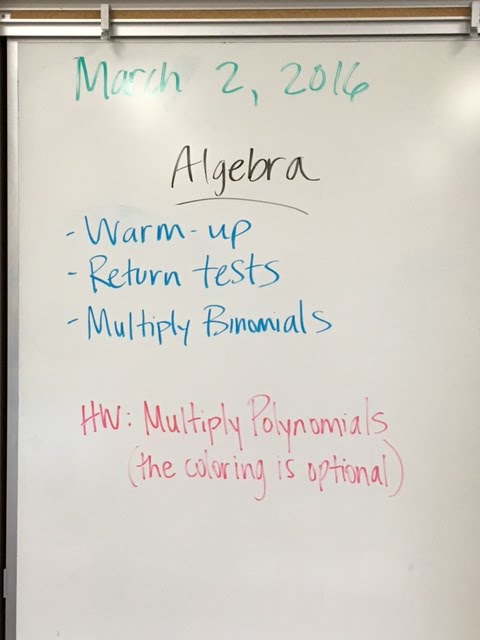 March 2, 2016
Algebra
- Warm-up
- Return tests
- Multiply Binomials
HW: Multiply Polynomials
(the coloring is optional)